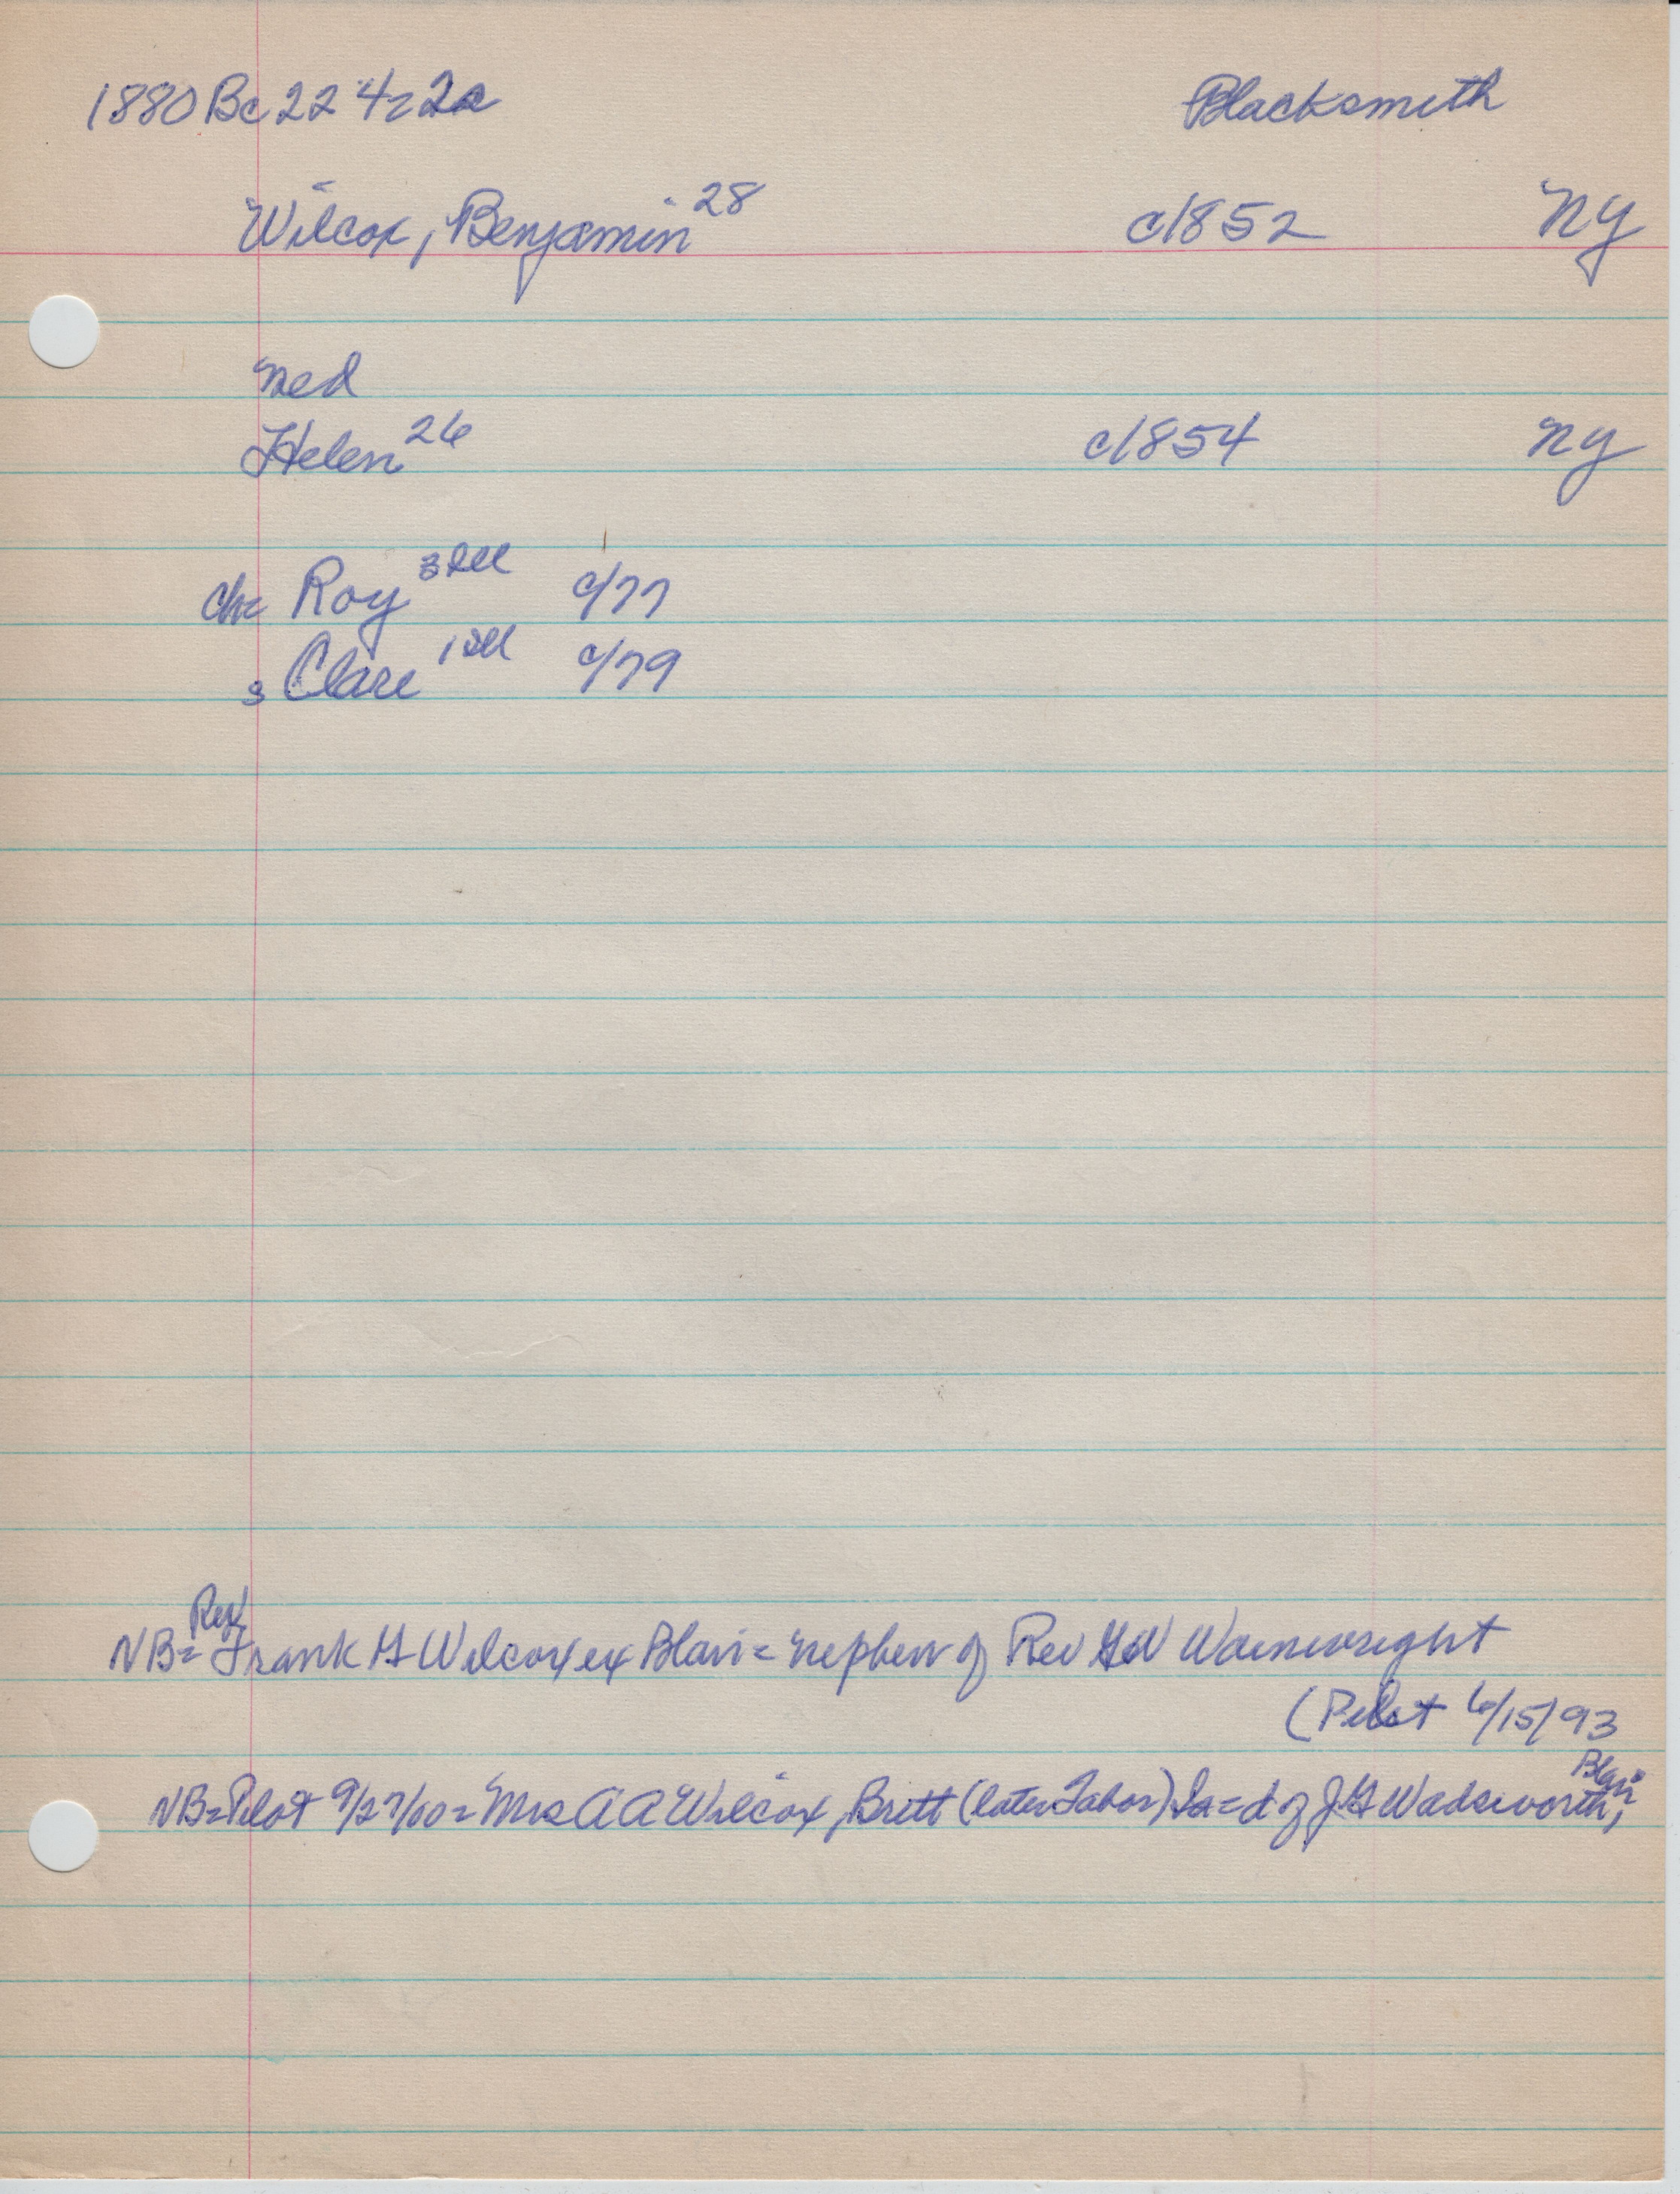 1880 Bc 22 4=2a Blacksmith
Wilcox, Benjamin 28 c1852 NY
med
Helen 26 c1854 NY
ch= Roy 3 Ill c/77
s Clare 1 Ill c/79
NB= Rev Frank G Wilcox ex Blair = nephew of Rev GW Wainwright
(Pilot 6/15/93
NB=Pilot 9/27/00= Mrs A A Wilcox, Britt (later Tabor) Ia = d of J G Wadsworth, Blair